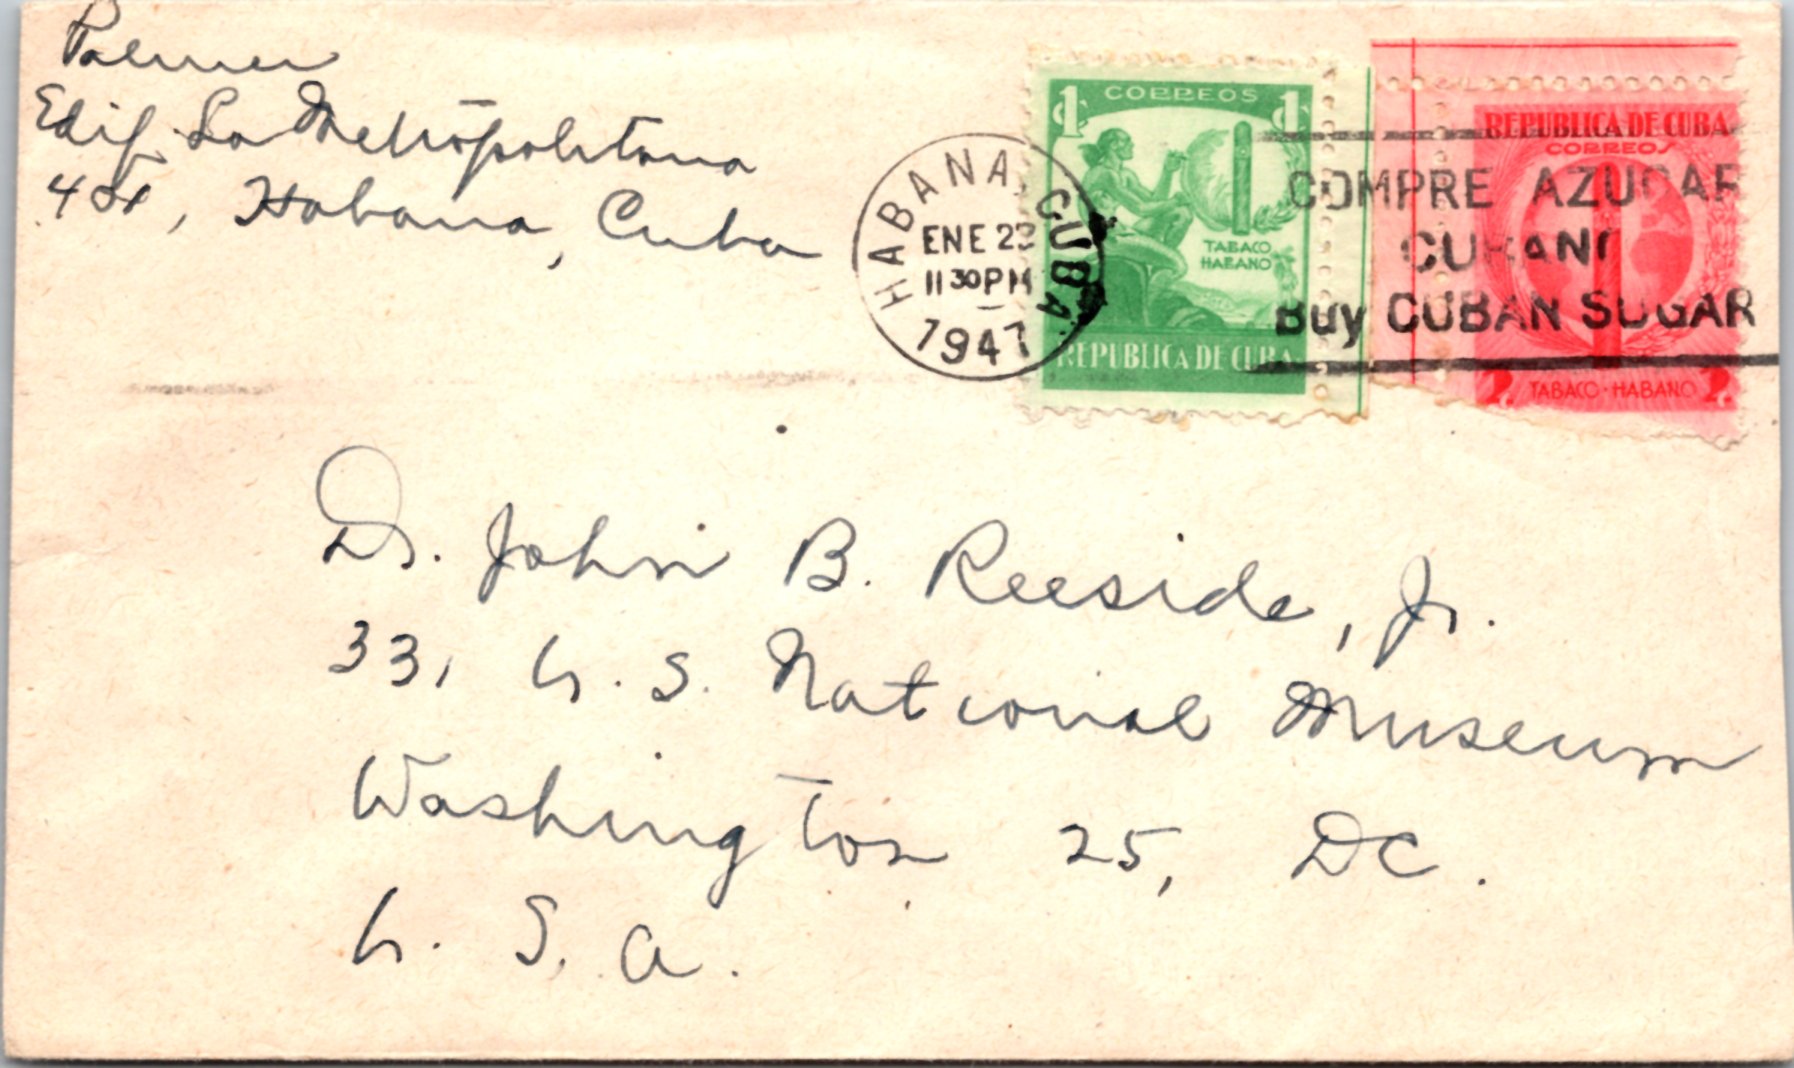 Palmer
Edif. La Metropolitana
Habana, Cuba
HABANA, CUBA
ENE 22
11 30 PM
1947
CORREOS
1¢ 1¢
TABACO
HABANO
REPUBLICA DE CUBA
REPUBLICA DE CUBA
CORREOS
COMPRE AZUCAR
CUBANO
Buy CUBAN SUGAR
2 TABACO · HABANO 2
Dr. John B. Reeside, Jr.
33, U.S. National Museum
Washington 25, DC.
U. S. A.